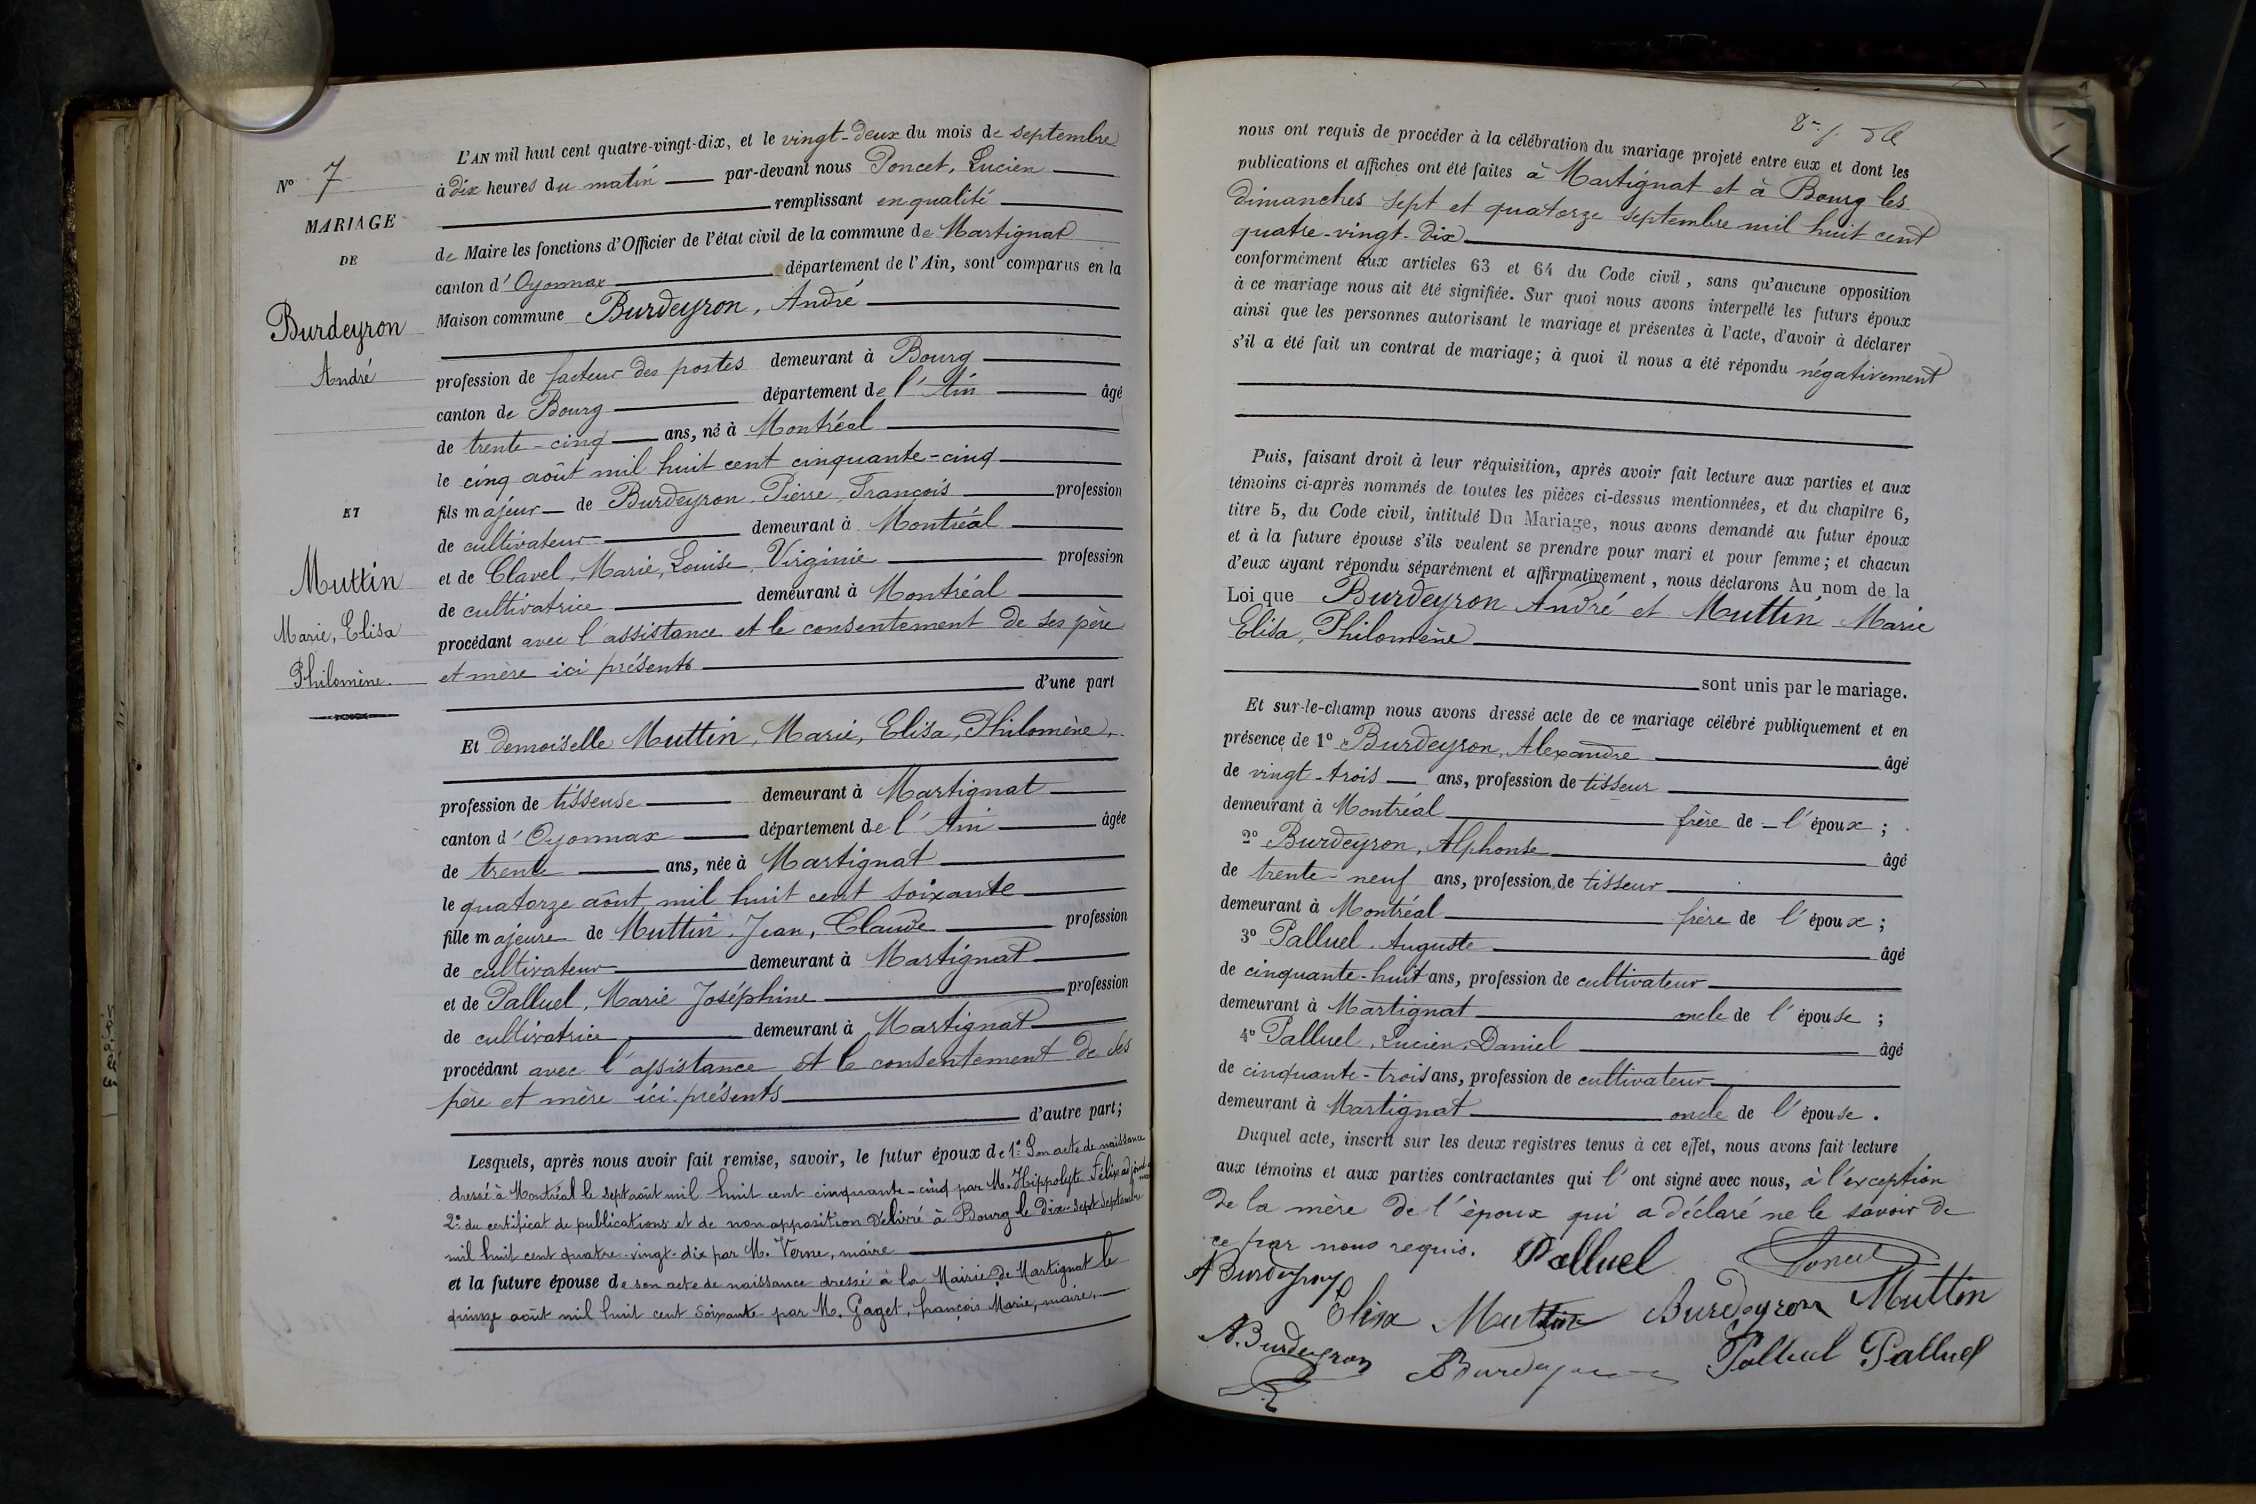 N° 7
MARIAGE
DE
Burdeyron
André
ET
Muttin
Marie, Elisa
Philomène.
L'AN mil huit cent quatre-vingt-dix, et le vingt-deux du mois de septembre
à dix heures du matin par-devant nous Poncet, Lucien
remplissant en qualité
de Maire les fonctions d'Officier de l'état civil de la commune de Martignat
canton d'Oyonnax département de l'Ain, sont comparus en la
Maison commune Burdeyron, André
profession de facteur des postes demeurant à Bourg
canton de Bourg département de l'Ain âgé
de trente-cinq ans, né à Montréal
le cinq août mil huit cent cinquante-cinq
fils majeur de Burdeyron Pierre François profession
de cultivateur demeurant à Montréal
et de Clavel, Marie, Louise, Virginie profession
de cultivatrice demeurant à Montréal
procédant avec l'assistance et le consentement de ses père
et mère ici présents
d'une part
Et demoiselle Muttin, Marie, Elisa, Philomène,
profession de tisseuse demeurant à Martignat
canton d'Oyonnax département de l'Ain âgée
de trente ans, née à Martignat
le quatorze août mil huit cent soixante
fille majeure de Muttin, Jean, Claude profession
de cultivateur demeurant à Martignat
et de Palluel, Marie Joséphine profession
de cultivatrice demeurant à Martignat
procédant avec l'assistance et le consentement de ses
père et mère ici présents
d'autre part;
Lesquels, après nous avoir fait remise, savoir, le futur époux de 1° Son acte de naissance
dressé à Montréal le sept août mil huit cent cinquante-cinq par M. Hippolyte Félix adjoint
2° du certificat de publications et de non opposition délivré à Bourg le dix-sept septembre
mil huit cent quatre-vingt-dix par M. Verne, maire
et la future épouse de son acte de naissance dressé à la Mairie de Martignat le
quinze août mil huit cent soixante par M. Gaget, françois Marie, maire,
nous ont requis de procéder à la célébration du mariage projeté entre eux et dont les
publications et affiches ont été faites à Martignat et à Bourg les
dimanches sept et quatorze septembre mil huit cent
quatre-vingt-dix
conformément aux articles 63 et 64 du Code civil, sans qu'aucune opposition
à ce mariage nous ait été signifiée. Sur quoi nous avons interpellé les futurs époux
ainsi que les personnes autorisant le mariage et présentes à l'acte, d'avoir à déclarer
s'il a été fait un contrat de mariage; à quoi il nous a été répondu négativement
Puis, faisant droit à leur réquisition, après avoir fait lecture aux parties et aux
témoins ci-après nommés de toutes les pièces ci-dessus mentionnées, et du chapitre 6,
titre 5, du Code civil, intitulé Du Mariage, nous avons demandé au futur époux
et à la future épouse s'ils veulent se prendre pour mari et pour femme; et chacun
d'eux ayant répondu séparément et affirmativement, nous déclarons Au nom de la
Loi que Burdeyron André et Muttin Marie
Elisa, Philomène
sont unis par le mariage.
Et sur-le-champ nous avons dressé acte de ce mariage célébré publiquement et en
présence de 1° Burdeyron, Alexandre âgé
de vingt-trois ans, profession de tisseur
demeurant à Montréal frère de l'époux;
2° Burdeyron, Alphonse âgé
de trente-neuf ans, profession de tisseur
demeurant à Montréal frère de l'époux;
3° Palluel, Auguste âgé
de cinquante-huit ans, profession de cultivateur
demeurant à Martignat oncle de l'épouse;
4° Palluel, Lucien, Daniel âgé
de cinquante-trois ans, profession de cultivateur
demeurant à Martignat oncle de l'épouse.
Duquel acte, inscrit sur les deux registres tenus à cet effet, nous avons fait lecture
aux témoins et aux parties contractantes qui l'ont signé avec nous, à l'exception
de la mère de l'époux qui a déclaré ne le savoir de
ce par nous requis. Palluel Poncet
A Burdeyron Elisa Muttin Burdeyron Muttin
A. Burdeyron Burdeyron Palluel Palluel